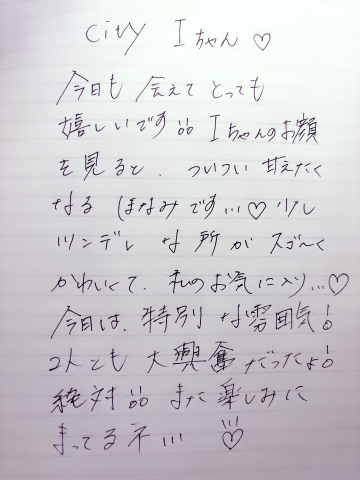 city Iちゃん♡
今日も会えてとっても
嬉しいです!! Iちゃんのお顔
を見ると、ついつい甘えたく
なるほなみです…♡少し
ツンデレな所がスゴ〜く
かわいくて、私のお気に入り…♡
今日は、特別な雰囲気!
2人とも大興奮だったよ!
絶対!! また楽しみに
まってるネ… ♡